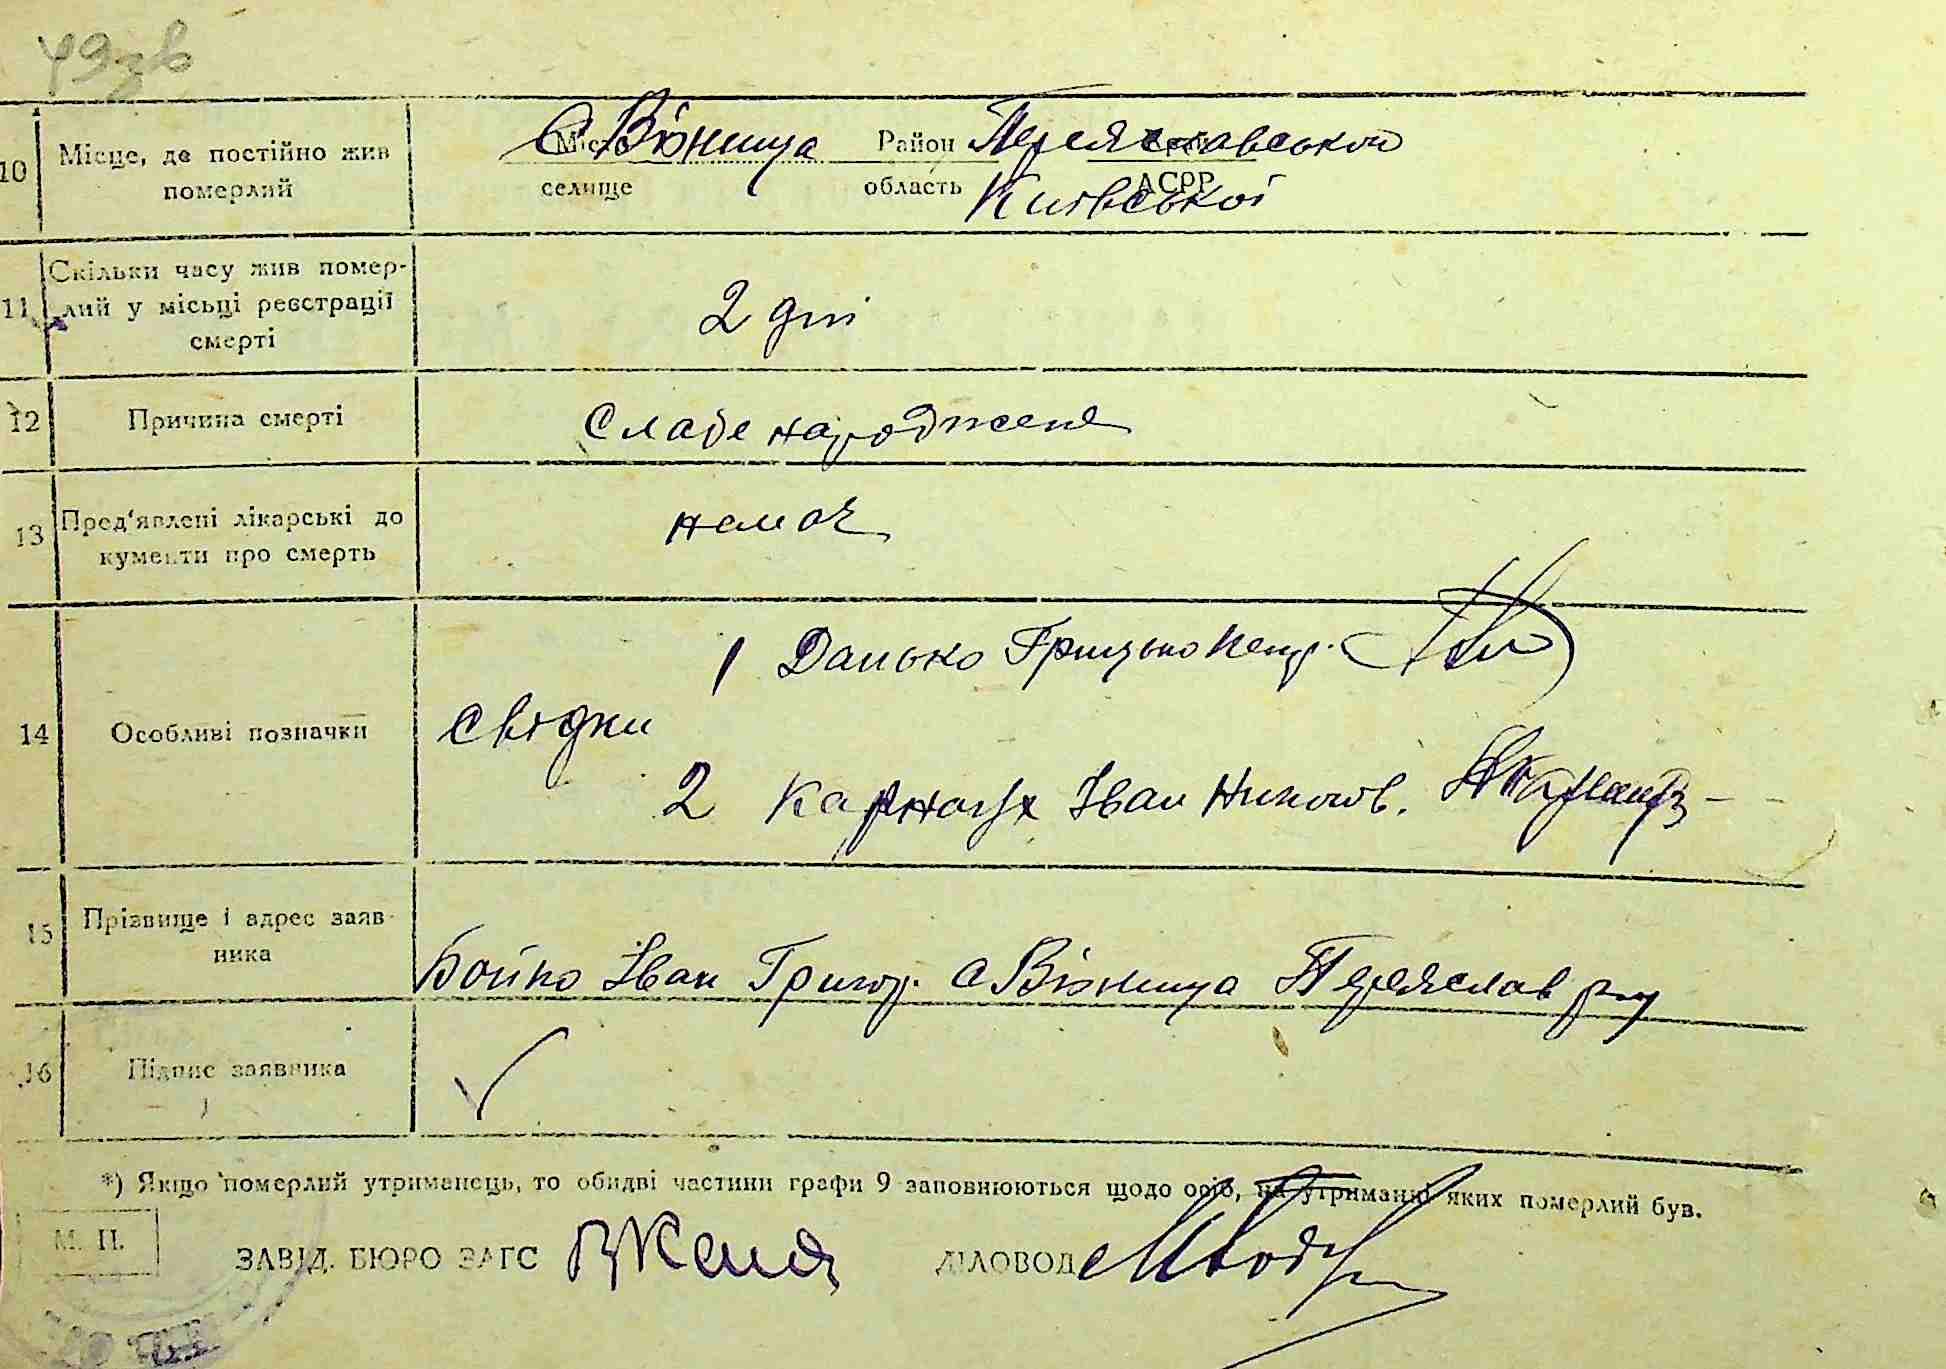 49зв
10 Місце, де постійно жив померлий
с Вюнища Район Переяславської
селище область Київської АСРР
11 Скільки часу жив помер-
лий у місьці реєстрації
смерті
2 дні
12 Причина смерті Слабе народженя
13 Пред'явлені лікарські до
кументи про смерть
немає
1 Данько Грицько Петр.
14 Особливі позначки свідки
2 Карнаух Іван Никогов.
15 Прізвище і адрес заяв-
ника
Бойко Іван Григор. с Вюнища Переяслав р-ну
16 Підпис заявника
*) Якщо померлий утриманець, то обидві частини графи 9 заповнюються щодо осіб, на утриманні яких померлий був.
М. П.
ЗАВІД. БЮРО ЗАГС ДІЛОВОД